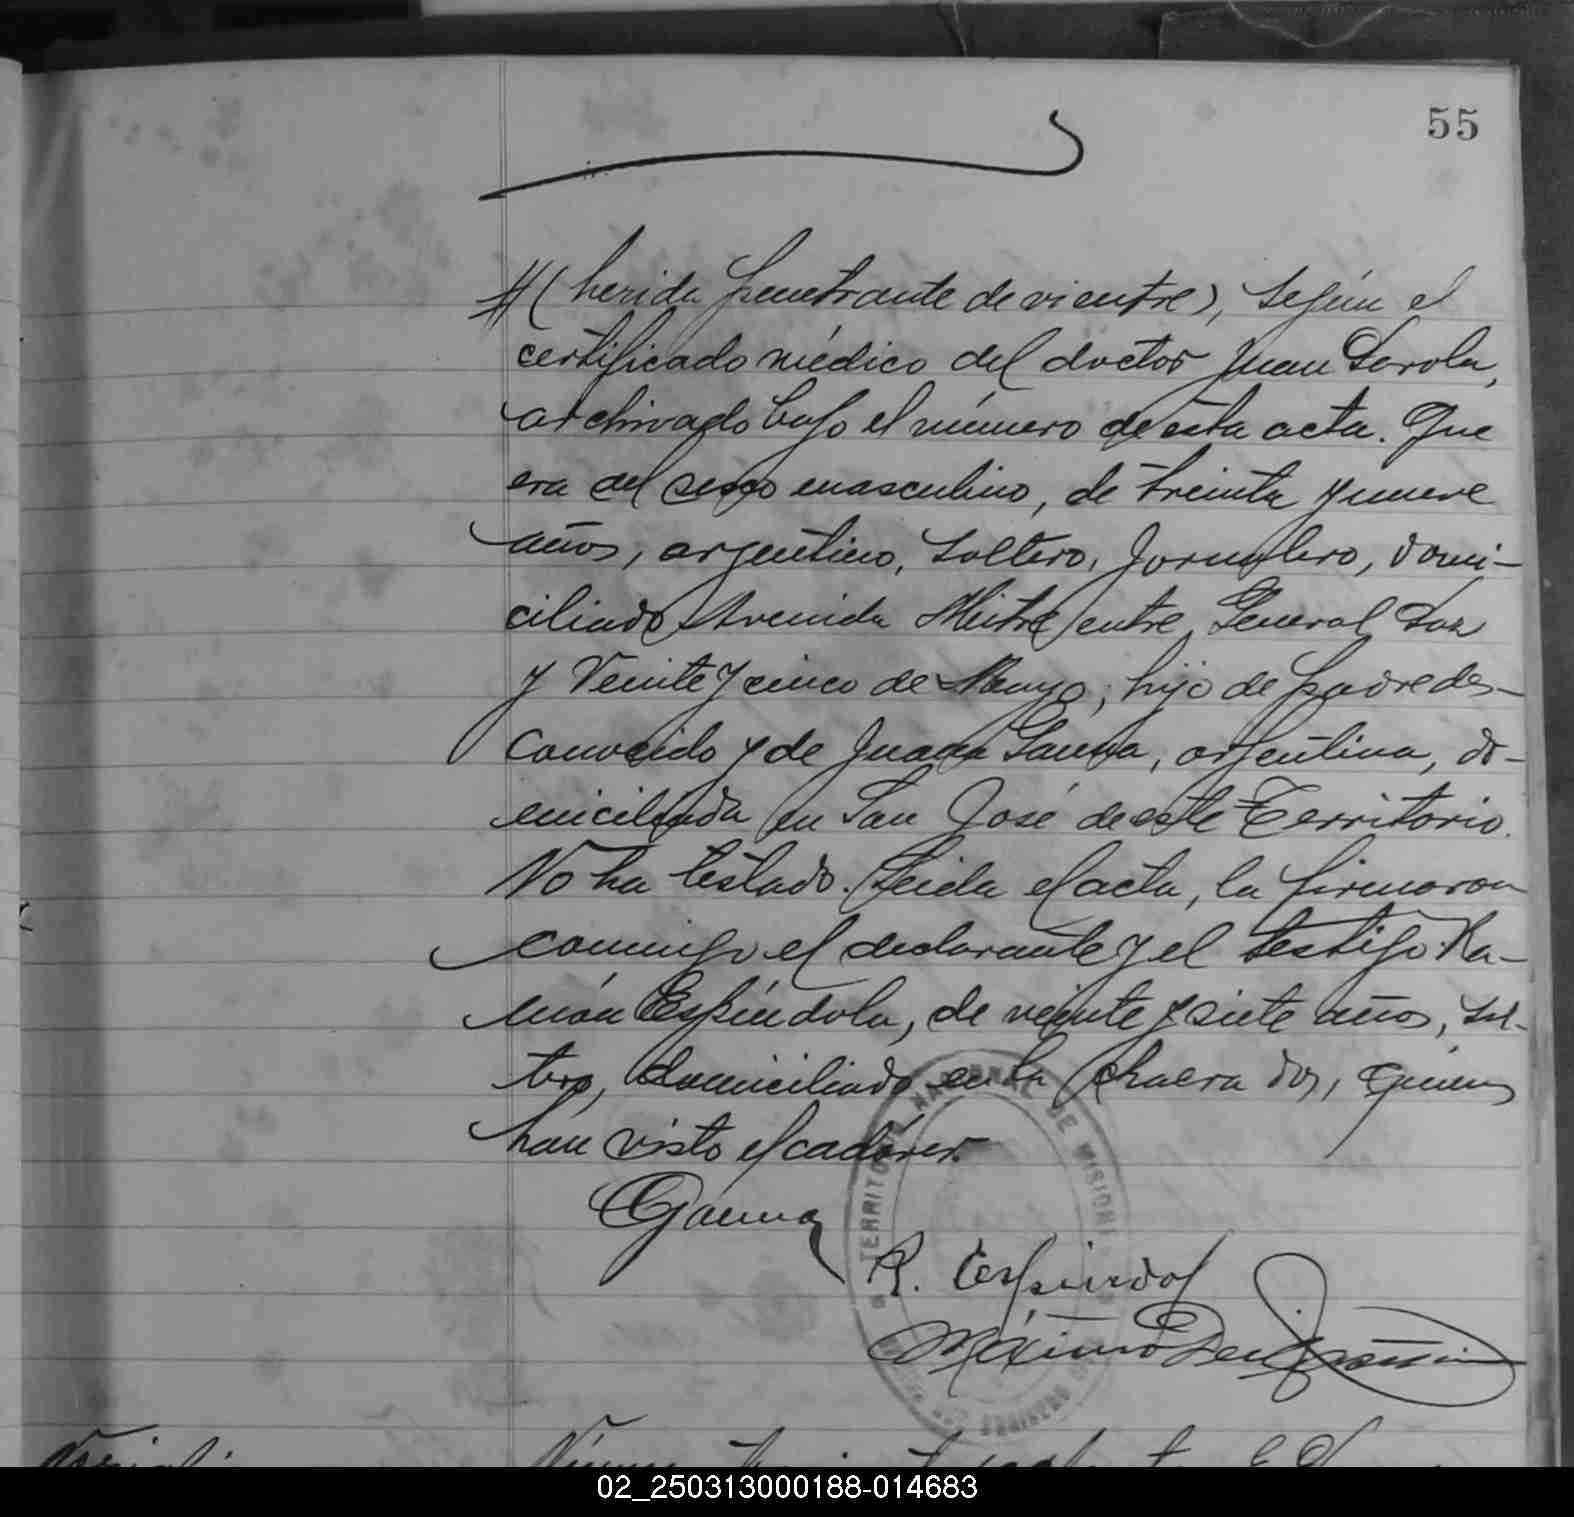 55
(herida penetrante de vientre), según el
certificado médico del doctor Juan Sorola,
archivado bajo el número de esta acta. Que
era del sexo masculino, de treinta y nueve
años, argentino, soltero, jornalero, domi-
ciliado Avenida Mitre entre General Paz
y Veinte y cinco de Mayo, hijo de padre des-
conocido y de Juana Gauna, argentina, do-
miciliada en San José de este Territorio.
No ha testado. Leida el acta, la firmaron
conmigo el declarante y el testigo Ra-
món Espíndola, de veinte y siete años, sol-
tero, domiciliado en la chacra dos, quienes
han visto el cadáver.
Gauna
R. Espindol
Máximo
TERRITORIO NACIONAL DE MISIONES
Número
02_250313000188-014683